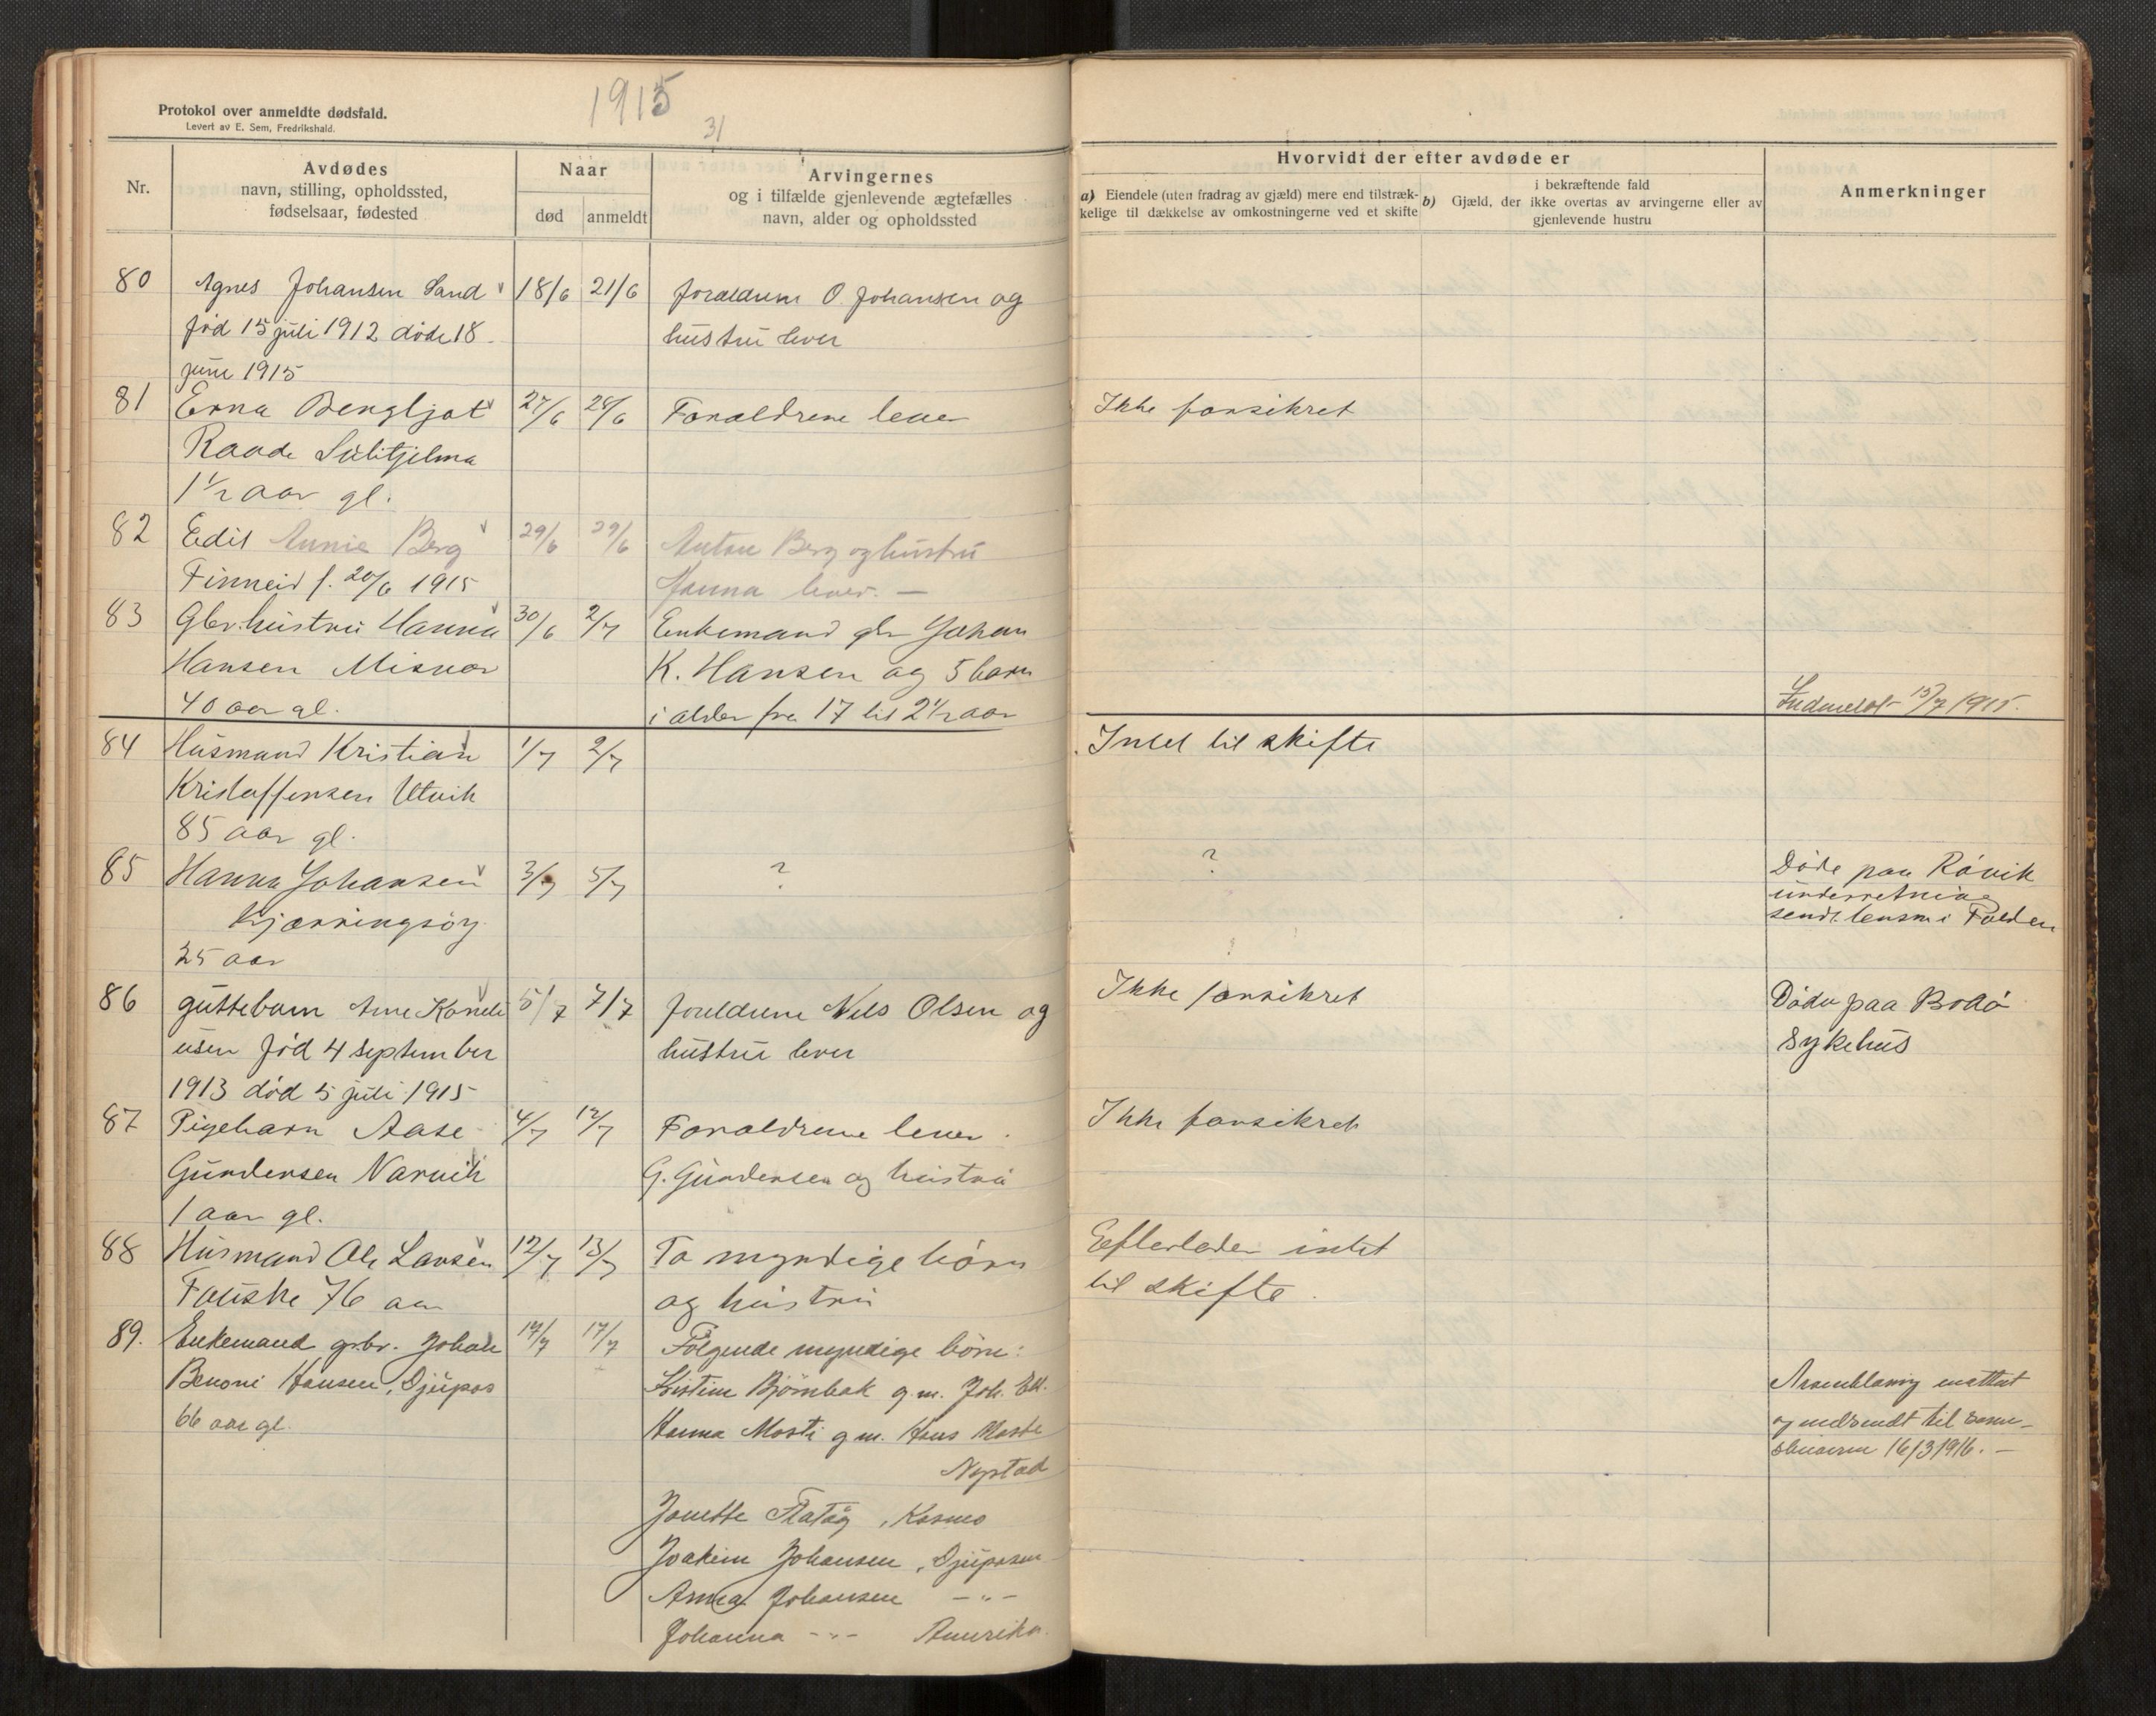 1915
31
Protokol over anmeldte dødsfald.
Levert av E. Sem, Fredrikshald.
Nr.
Avdødes
navn, stilling, opholdssted,
fødselsaar, fødested
Naar
død
anmeldt
Arvingernes
og i tilfælde gjenlevende ægtefælles
navn, alder og opholdssted
Hvorvidt der efter avdøde er
a) Eiendele (uten fradrag av gjæld) mere end tilstræk-
kelige til dækkelse av omkostningerne ved et skifte
i bekræftende fald
b) Gjæld, der ikke overtas av arvingerne eller av
gjenlevende hustru
Anmerkninger
80 Agnes Johansen Sand 18/6 21/6 foraldrene O. Johansen og
fød 15 juli 1912 døde 18 hustru lever
june 1915
81 Erna Bergljot 27/6 28/6 Foraldrene lever Ikke forsikret
Raade Sulitjelma
1 1/2 aar gl.
82 Edit Annie Berg 29/6 29/6 Anton Berg og hustru
Finneid f. 20/6 1915 Hanna lever. —
83 Gbr.hustru Hanna 30/6 2/7 Enkemand gbr Johan
Hansen Misvær K. Hansen og 5 barn
40 aar gl. i alder fra 17 til 2 1/2 aar Indmeldt 15/7 1915.
84 Husmand Kristian 1/7 2/7 Intet til skifte
Kristoffersen Utvik
85 aar gl.
85 Hanna Johansen 3/7 5/7 ? ? Døde paa Rønvik
Kjærringsøy underretning
25 aar sendt lensm i Folden
86 guttebarn Arne Korneli 5/7 7/7 foreldrene Nils Olsen og Ikke forsikret Døde paa Bodø
usen fød 4 september hustru lever Sykehus
1913 død 5 juli 1915
87 Pigebarn Aase 4/7 12/7 Foraldrene lever. Ikke forsikret
Gundersen Narvik G. Gundersen og hustru
1 aar gl.
88 Husmand Ole Larsen 12/7 13/7 To myndige børn Eefterlader intet
Fauske 76 aar og hustru til skifte.
89. Enkemand grbr. Johan 14/7 17/7 Følgende myndige børn:
Benoni Hansen, Djupos Kristine Bjørnbak g.m. Joh. Ell.
66 aar gl. Hanna Mosti g.m. Hans Mosti
Nystad
og nedsendt til
16/3 1916. —
Jonette Flatåg, Kosmo
Joakim Johansen, Djuposen
Anna Johansen —"—
Johanna —"— Amerika.